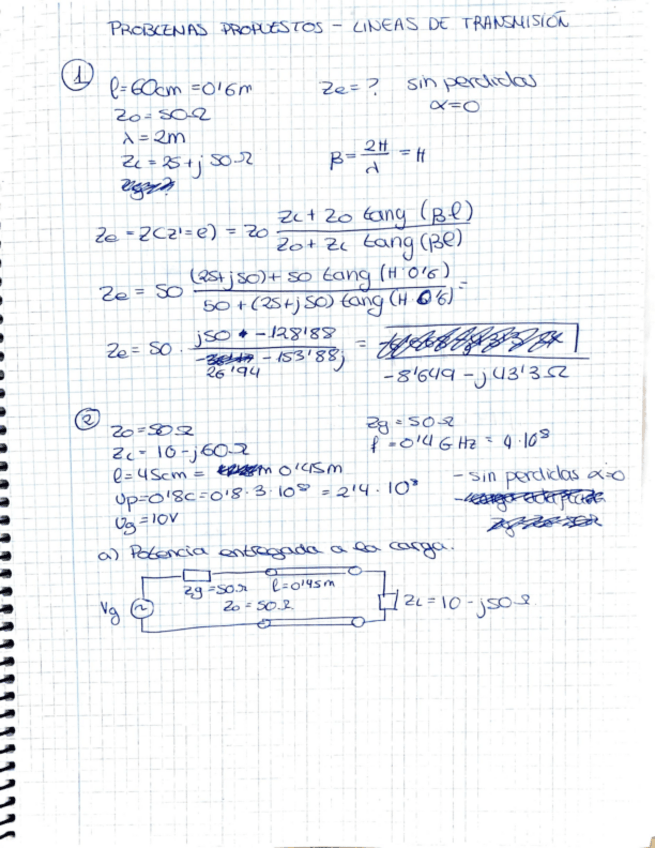 PROBLEMAS PROPUESTOS - LINEAS DE TRANSMISIÓN
① l=60cm=0'6m Ze=? sin perdidas
Zo=50Ω α=0
λ=2m
ZL=25+j50Ω β=2π/λ=π
Ze=Z(z'=l)=Zo (ZL+Zo tang(βl))/(Zo+ZL tang(βl))
Ze=50 ((25+j50)+50 tang(π·0'6))/(50+(25+j50)tang(π·0'6))=
Ze=50· (j50 + -128'88)/(26'94 -153'88j) =
-8'649-j43'3Ω
② Zo=50Ω Zg=50Ω
ZL=10-j60Ω f=0'4GHz=4·10⁸
l=45cm= 0'45m - sin perdidas α=0
Up=0'8c=0'8·3·10⁸=2'4·10⁸
Vg=10V
a) Potencia entregada a la carga.
Zg=50Ω l=0'45m
Vg Zo=50Ω ZL=10-j50Ω